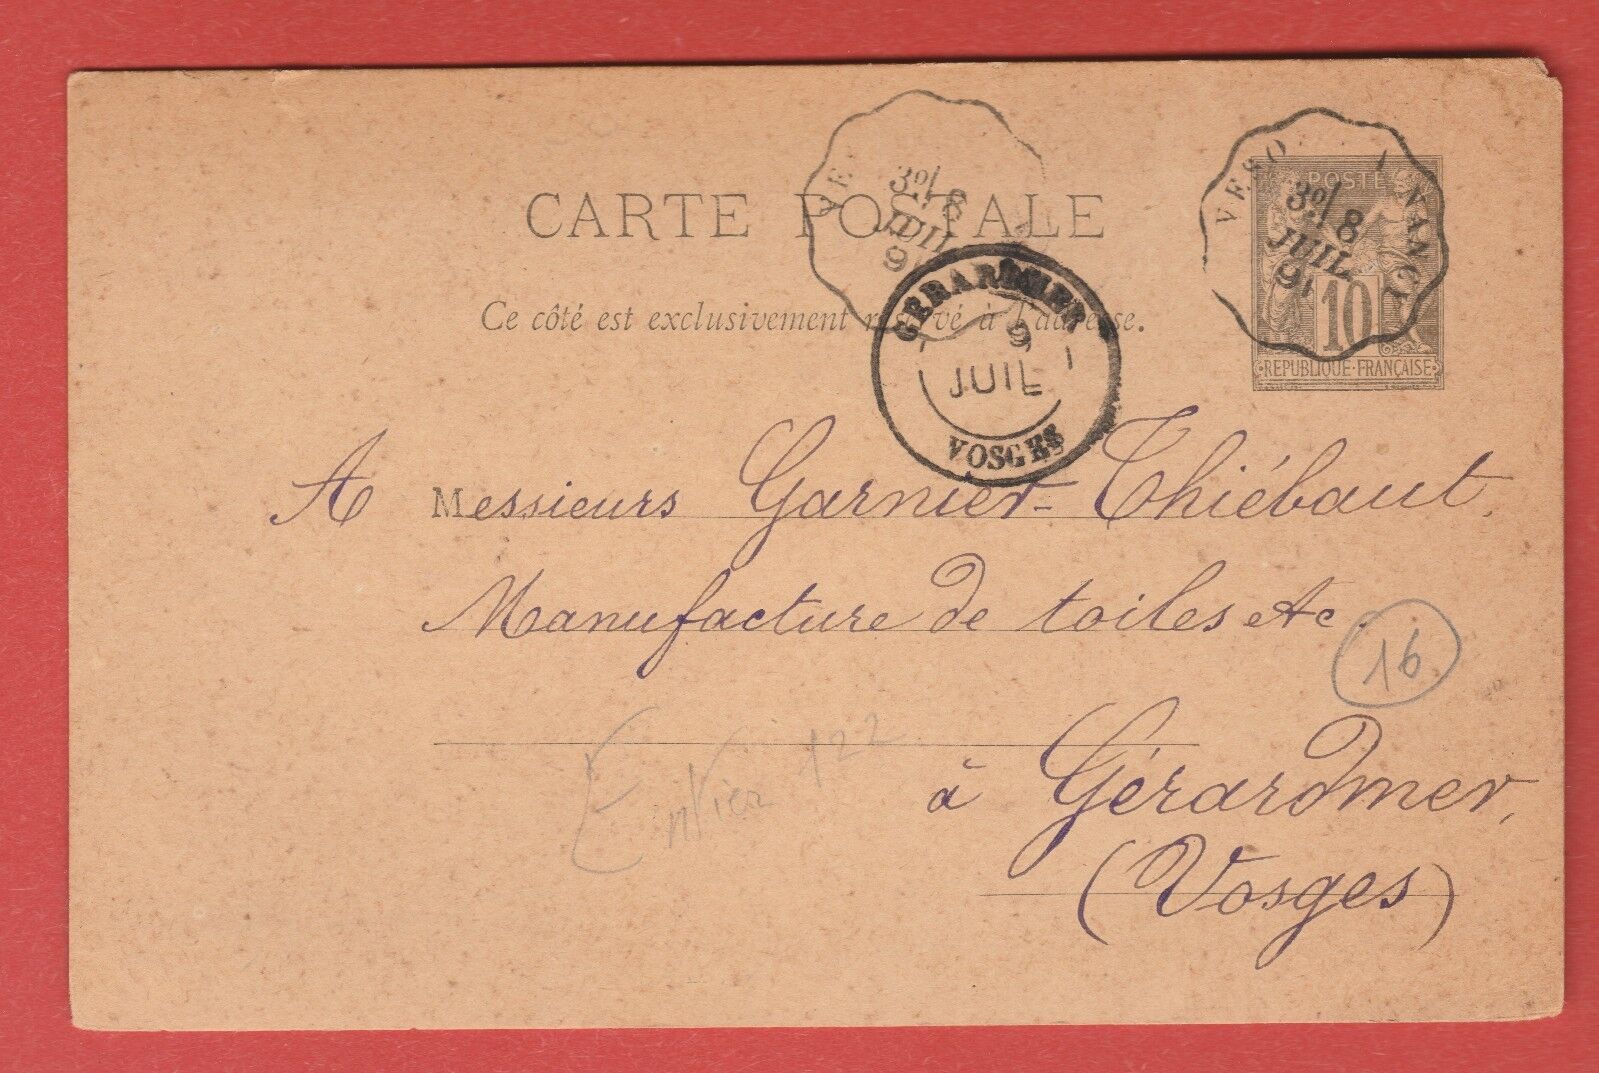 CARTE POSTALE
Ce côté est exclusivement réservé à l'adresse.
VE
3º/
8
JUIL
9
VESO A NANCY
3º/
8
JUIL
91
POSTE
10
REPUBLIQUE·FRANÇAISE
GERARDMER
9
JUIL
VOSGES
A Messieurs Garnier-Thiébaut,
Manufacture de toiles etc.
16
Entier 122
à Gérardmer,
(Vosges)